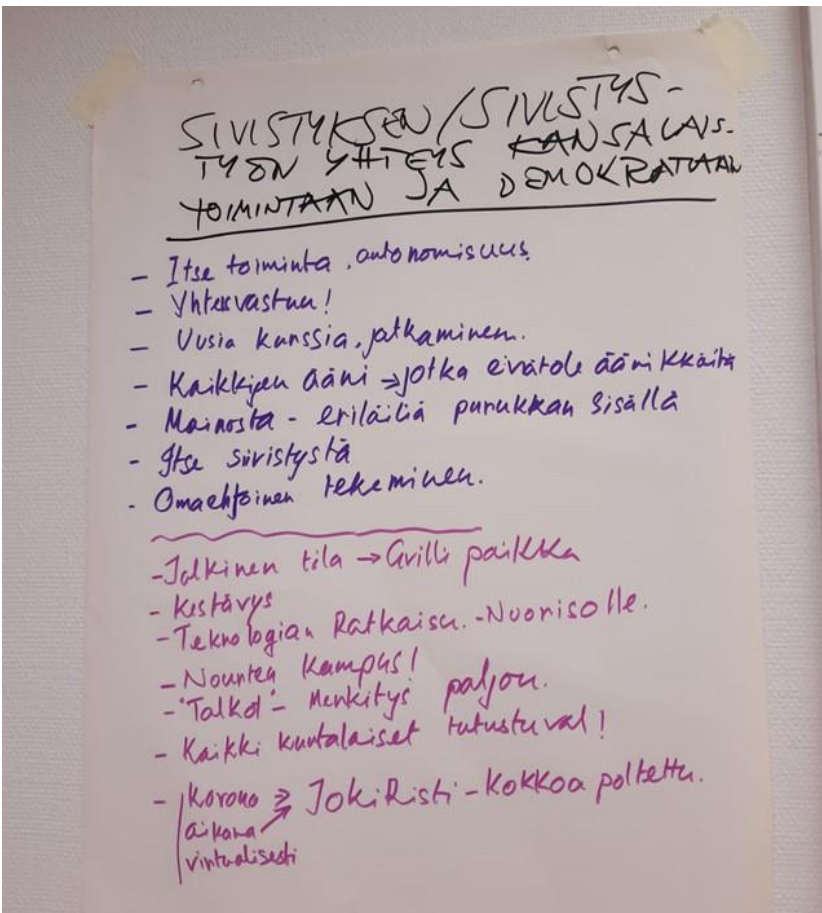 SIVISTYKSEN / SIVISTYS-
TYÖN YHTEYS KANSALAIS-
TOIMINTAAN JA DEMOKRATIAAN
- Itse toiminta, autonomisuus
- Yhteisvastuu!
- Uusia kurssia, jatkaminen.
- Kaikkijen ääni → jotka eivätole äänikkäitä
- Mainosta - eriläiliä purukkan sisällä
- Itse sivistystä
- Omaehtoinen tekeminen.
- Julkinen tila → Grilli paikka
- Kestävys
- Teknologian Ratkaisu. - Nuorisolle.
- Nounten Kampus!
- "Talkot" - Merkitys paljon.
- Kaikki kuntalaiset tutustuval!
- Korona ⇒ JokiRisti - Kokkoa poltettu.
aikana
virtualisesti